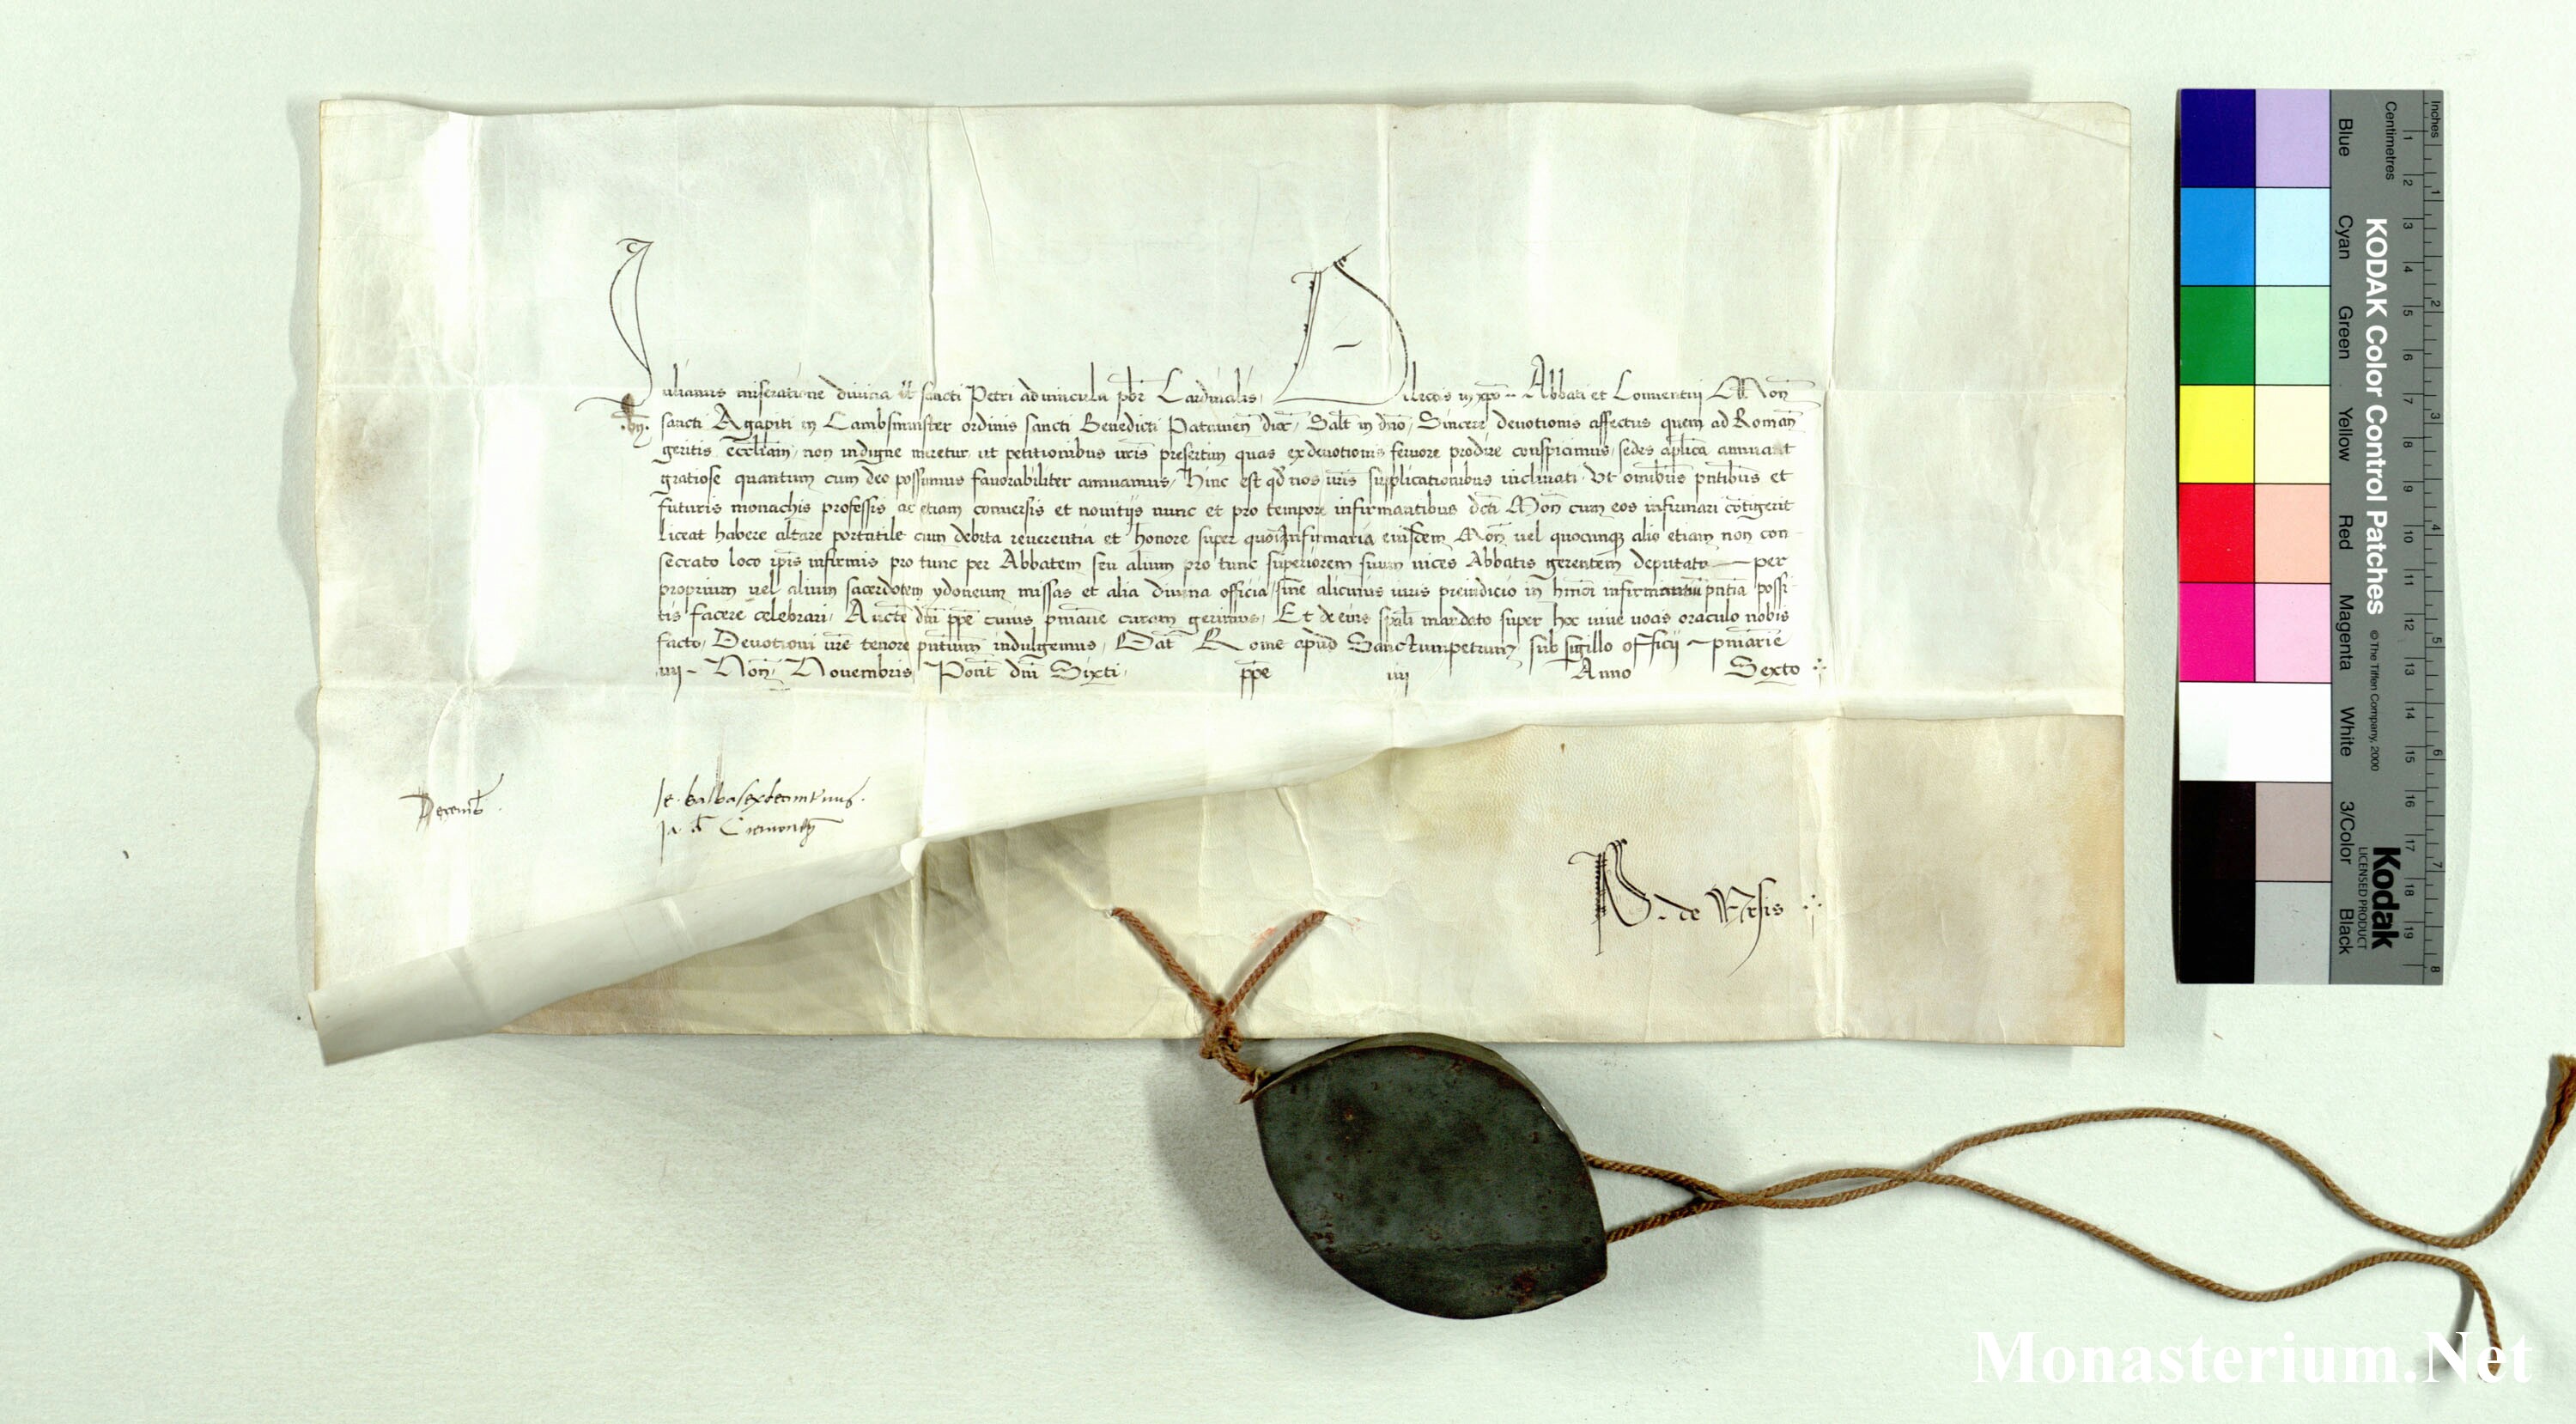 Julianus miseratione divina tt̄ sancti Petri ad vincula pbr̄ Cardinalis, Dilectis in xpō ·· Abbati et Conventui Mon̄
sancti Agapiti in Cambsmunster ordinis sancti Benedicti Patavien̄ dioc̄, Salt̄ in dnō, Sincere devotionis affectus quem ad Roman̄
geritis eccl̄iam, non indigne meretur ut petitionibus vr̄is presertim quas ex devotionis fervore prodire conspicimus, sedes apl̄ica annuat
gratiose quantum cum deo possumus favorabiliter annuamus, Hinc est qd̄ nos vr̄is supplicationibus inclinati Ut omībus pn̄tibus et
futuris monachis professis ac etiam conversis et novitijs nunc et pro tempore infirmantibus dc̄ti Mon̄ cum eos infirmari cōtigerit
liceat habere altare portatile cum debita reverentia et honore super quo in Infirmaria eiusdem Mon̄ vel quocunqȝ alio etiam non con
secrato loco ip̄is infirmis pro tunc per Abbatem seu alium pro tunc superiorem suum vices Abbatis gerentem deputato — per
proprium vel alium sacerdotem ydoneum missas et alia divina officia, sine alicuius iuris preiudicio in hmōi infirmantiū pn̄tia possi
tis facere celebrari, Auctē dn̄i pp̄e cuius pn̄iarie curam gerimus, Et de eius sp̄ali mandato super hoc vive vocis oraculo nobis
facto, Devotioni vr̄e tenore pn̄tium indulgemus, Dat̄ Rome apud Sanctumpetrum sub sigillo officij pn̄iarie
iiij Non̄ Novembris Pont̄ dn̄i Sixti pp̄e iiij Anno Sexto
Decemb̄.
Ja. Cremonen̄
de Ursis
Inches
Centimetres
KODAK Color Control Patches
© The Tiffen Company, 2000
Kodak
LICENSED PRODUCT
Blue
Cyan
Green
Yellow
Red
Magenta
White
3/Color
Black
1
2
3
4
5
6
7
8
9
10
11
12
13
14
15
16
17
18
19
1
2
3
4
5
6
7
8
Monasterium.Net